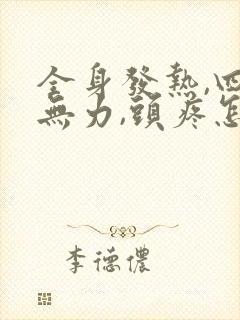 全身發熱,四
無力,頭疼怎
李德儂